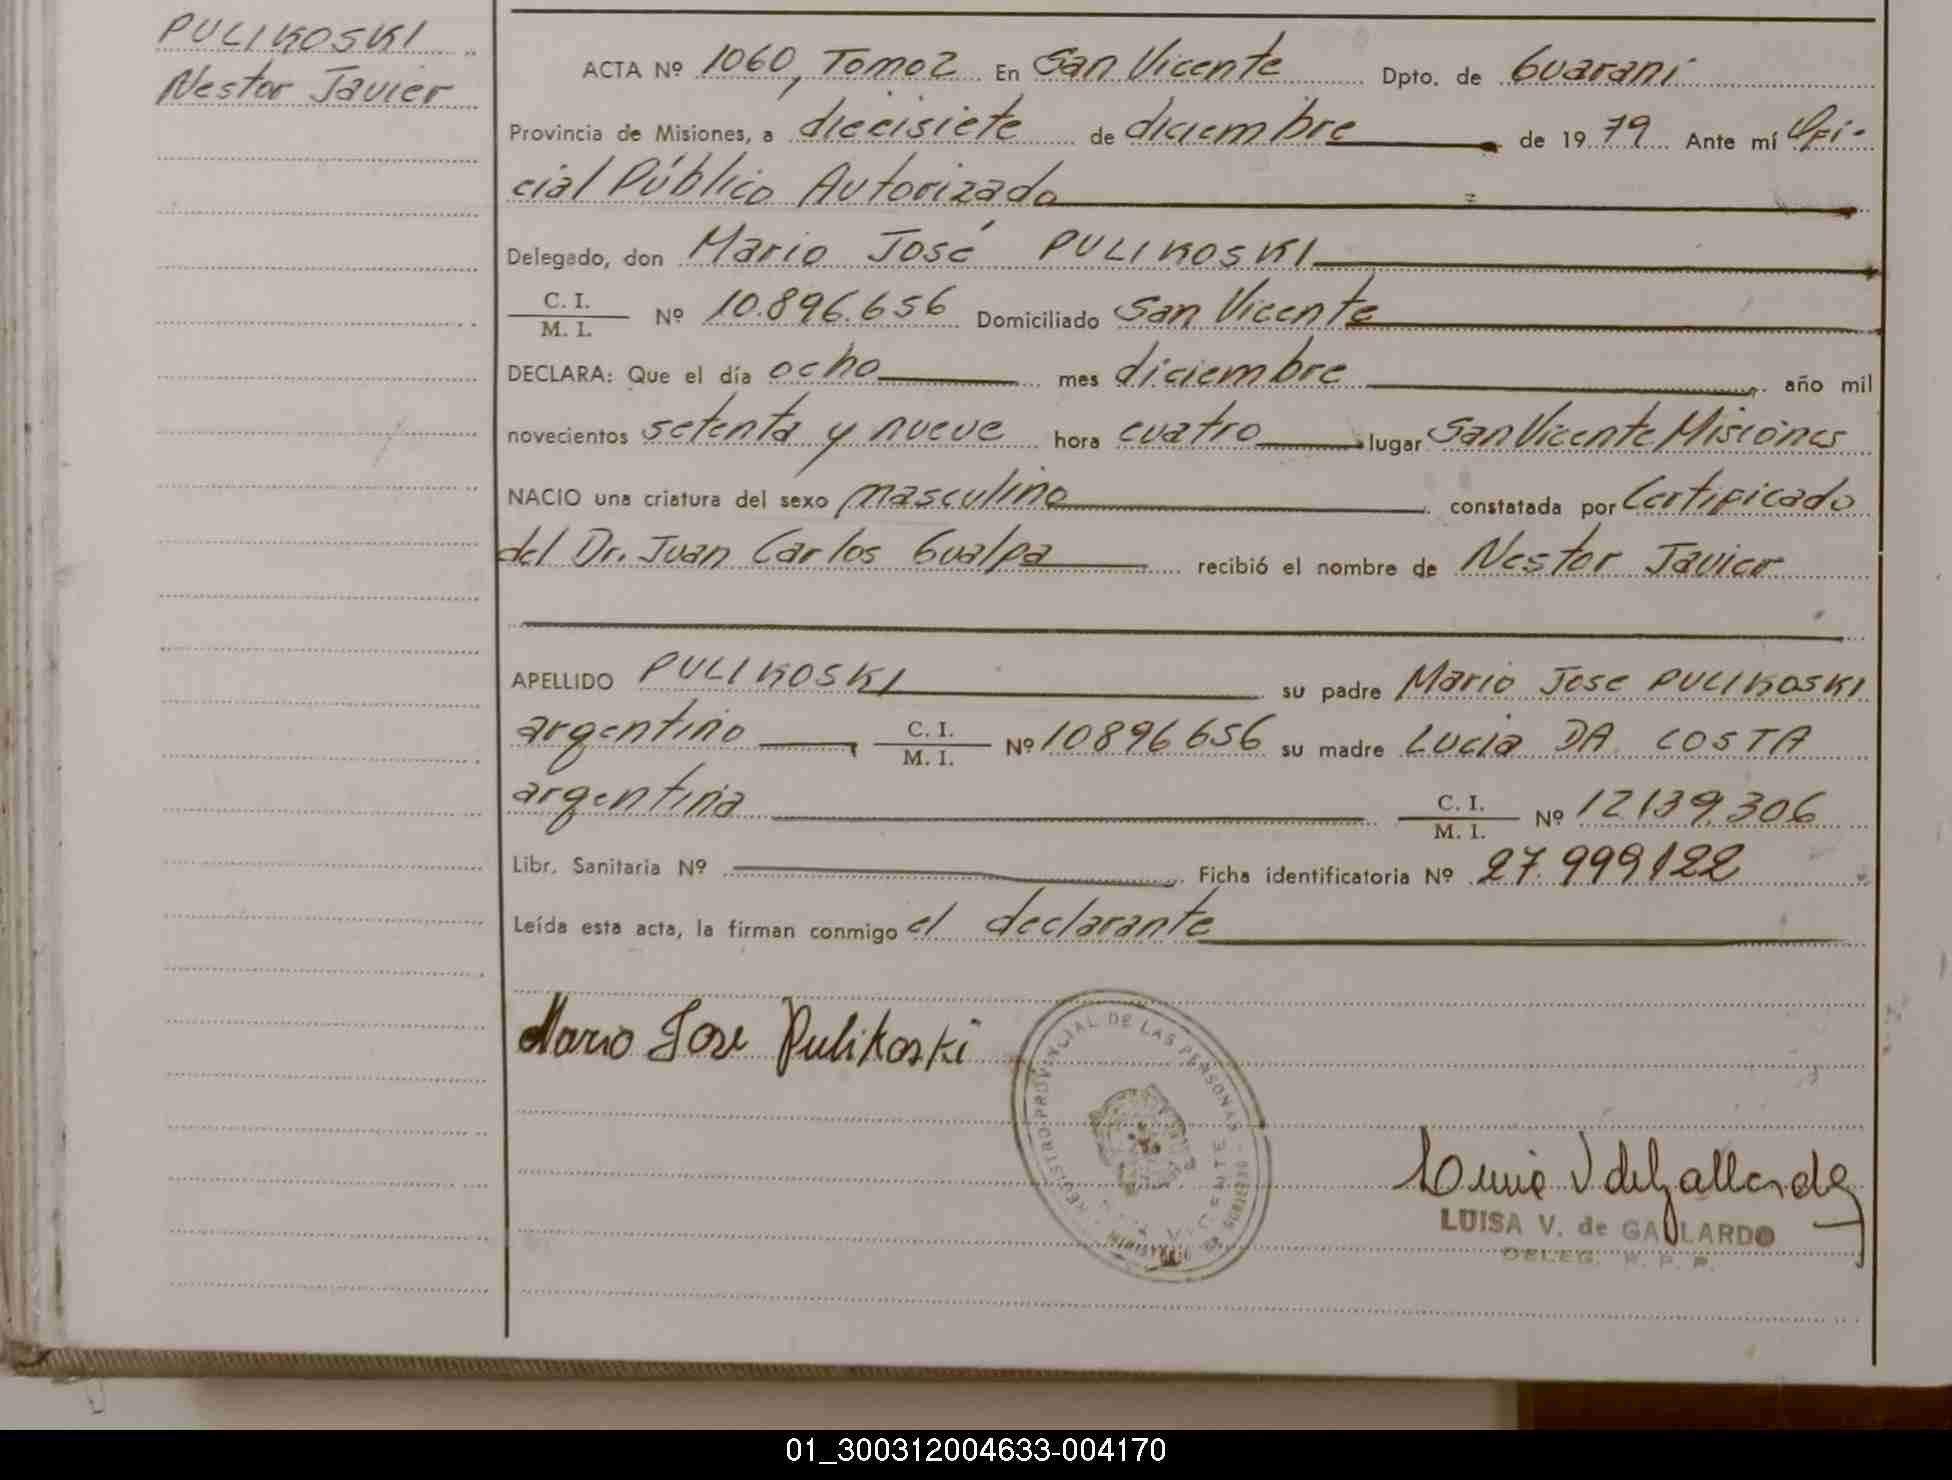 PULIKOSKI
Nestor Javier
ACTA Nº 1060, Tomo 2 En San Vicente Dpto. de Guaraní
Provincia de Misiones, a diecisiete de diciembre de 1979 Ante mí Ofi-
cial Público Autorizado
Delegado, don Mario José PULIKOSKI
C. I.
M. I. Nº 10.896.656 Domiciliado San Vicente
DECLARA: Que el día ocho mes diciembre año mil
novecientos setenta y nueve hora cuatro lugar San Vicente Misiones
NACIO una criatura del sexo masculino constatada por Certificado
del Dr. Juan Carlos Gualpa recibió el nombre de Nestor Javier
APELLIDO PULIKOSKI su padre Mario Jose PULIKOSKI
argentino C. I.
M. I. Nº 10896656 su madre Lucia DA COSTA
argentina C. I.
M. I. Nº 12139.306
Libr. Sanitaria Nº Ficha identificatoria Nº 27.999122
Leída esta acta, la firman conmigo el declarante
Mario Jose Pulikoski
REGISTRO PROVINCIAL DE LAS PERSONAS
VICENTE
Luisa V de Gallardo
LUISA V. de GALLARDO
DELEG. R. P. P.
01_300312004633-004170